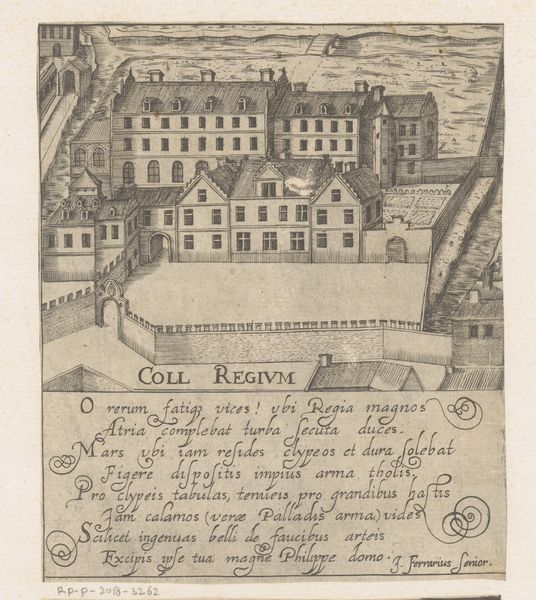 COLL REGIVM
O rerum fatiq3 vices! vbi Regia magnos
Atria complebat turba secuta duces.
Mars vbi iam resides clypeos et dura solebat
Figere dispositis impius arma tholis,
Pro clypeis tabulas, tenueis pro grandibus hastis
Iam calamos (veræ Palladis arma) vides
Scilicet ingenuas belli de faucibus arteis
Excipis ipse tua magne Philippe domo.
J. Ferrarius Senior.
RP-P-2018-3262